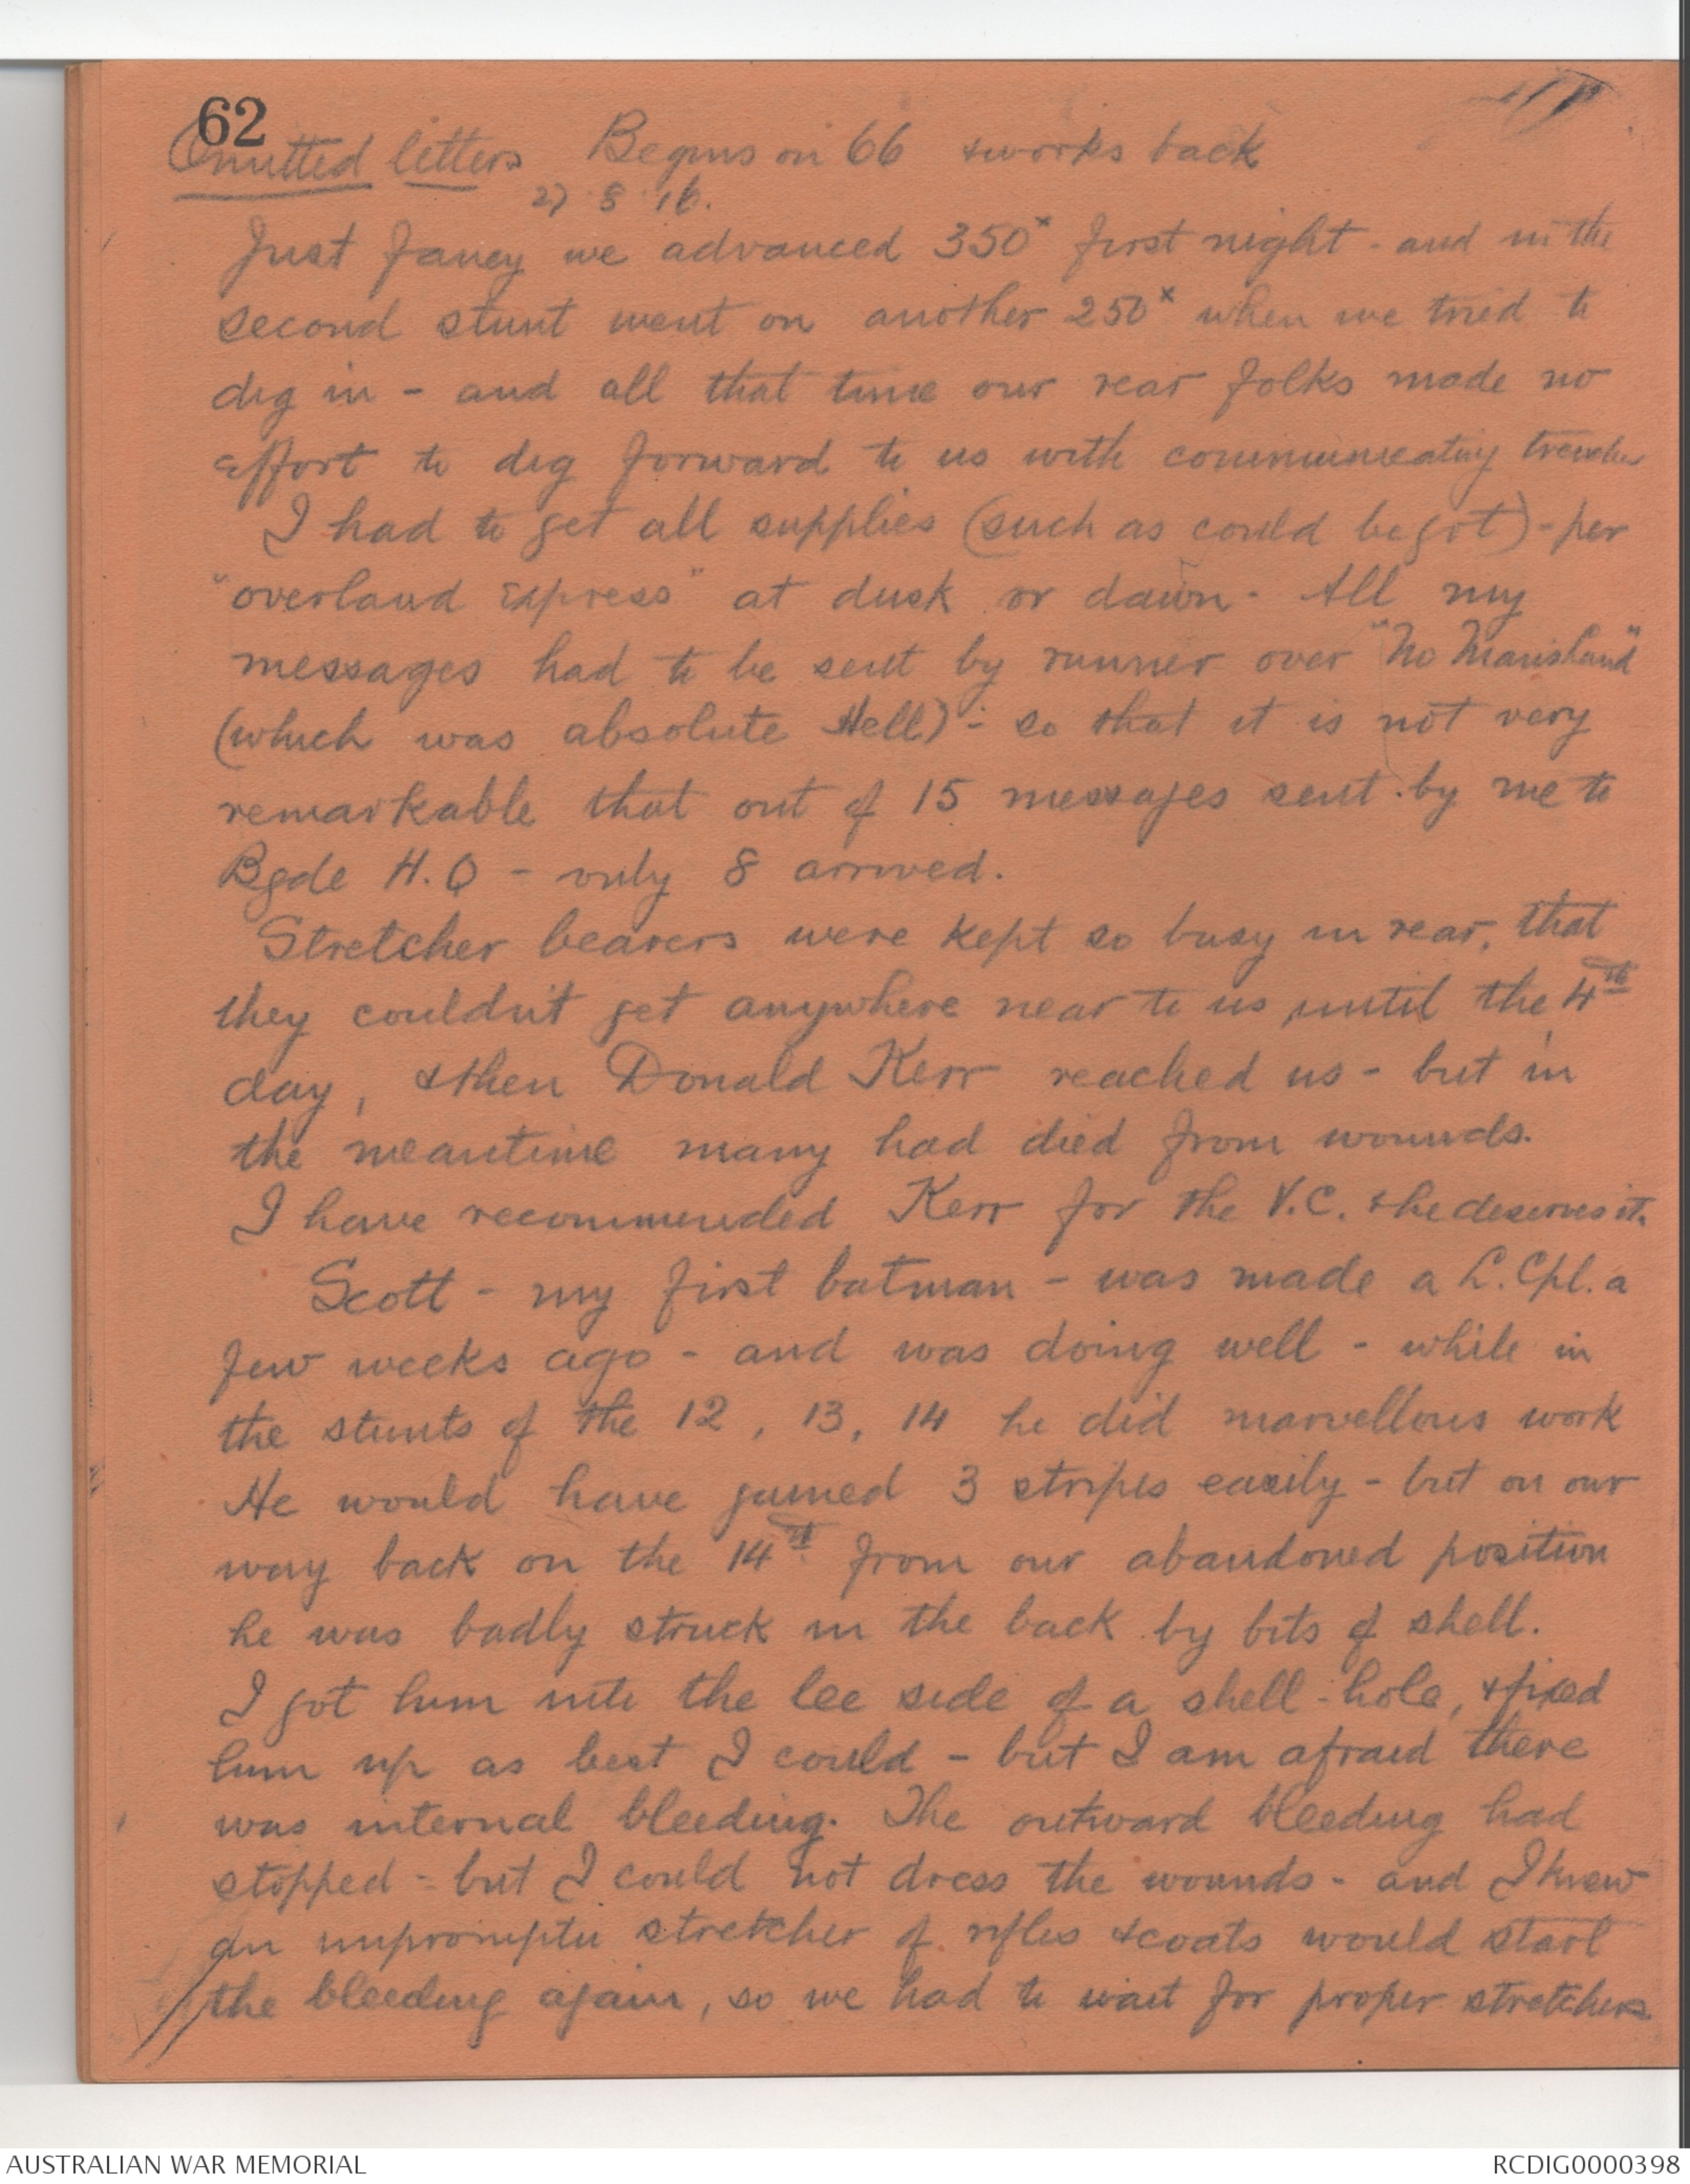 62
Omitted letters Begins on 66 & works back
27.8.16.
Just fancy we advanced 350ˣ first night - and in the
second stunt went on another 250ˣ when we tried to
dig in - and all that time our rear folks made no
effort to dig forward to us with communicating trenches
I had to get all supplies (such as could be got) - per
"overland express" at dusk or dawn. All my
messages had to be sent by runner over "No Mans Land"
(which was absolute Hell) - so that it is not very
remarkable that out of 15 messages sent by me to
Bgde H.Q - only 8 arrived.
Stretcher bearers were kept so busy in rear, that
they couldn't get anywhere near to us, until the 4th
day, & then Donald Kerr reached us - but in
the meantime many had died from wounds.
I have recommended Kerr for the V.C. & he deserves it.
Scott - my first batman - was made a L. Cpl. a
few weeks ago - and was doing well - while in
the stunts of the 12, 13, 14 he did marvellous work
He would have gained 3 stripes easily - but on our
way back on the 14th from our abandoned position
he was badly struck in the back by bits of shell.
I got him into the lee side of a shell-hole, & fixed
him up as best I could - but I am afraid there
was internal bleeding. The outward bleeding had
stopped - but I could not dress the wounds - and I knew
an impromptu stretcher of rifles & coats would start
the bleeding again, so we had to wait for proper stretchers
AUSTRALIAN WAR MEMORIAL
RCDIG0000398